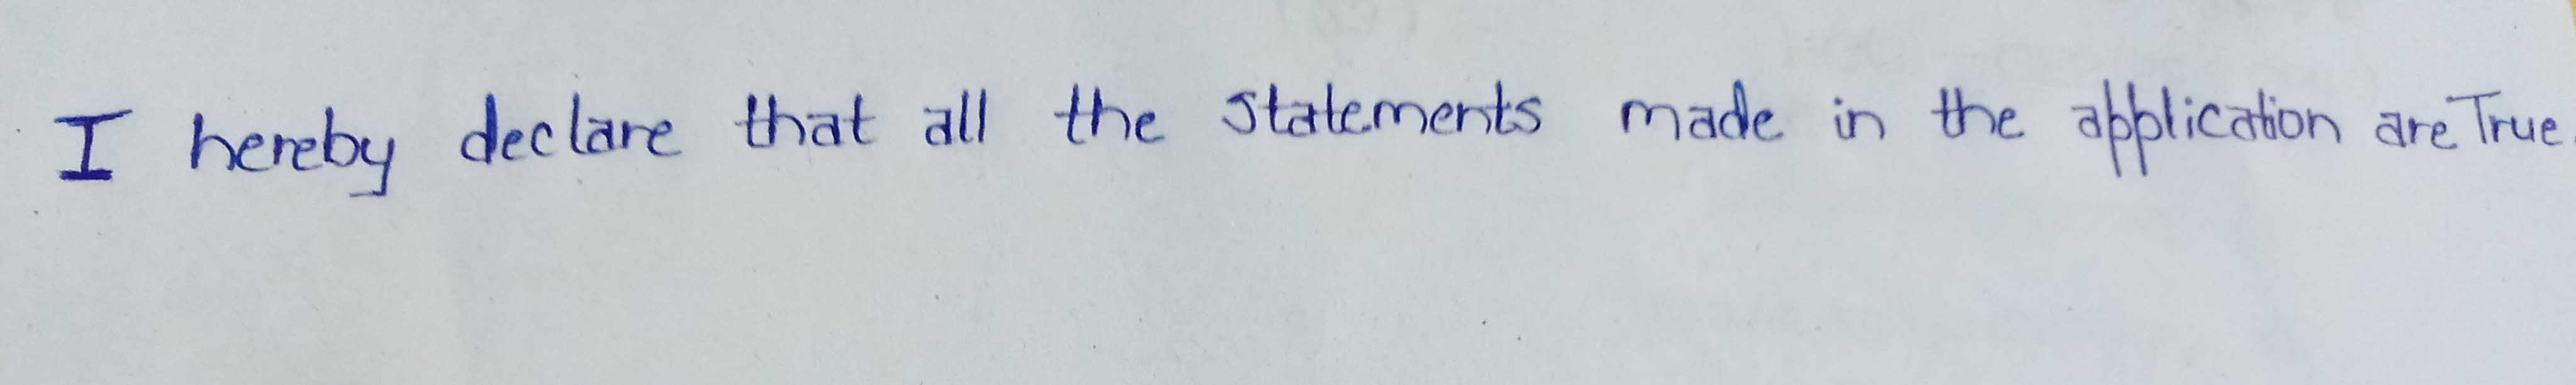 I hereby declare that all the statements made in the application are True.